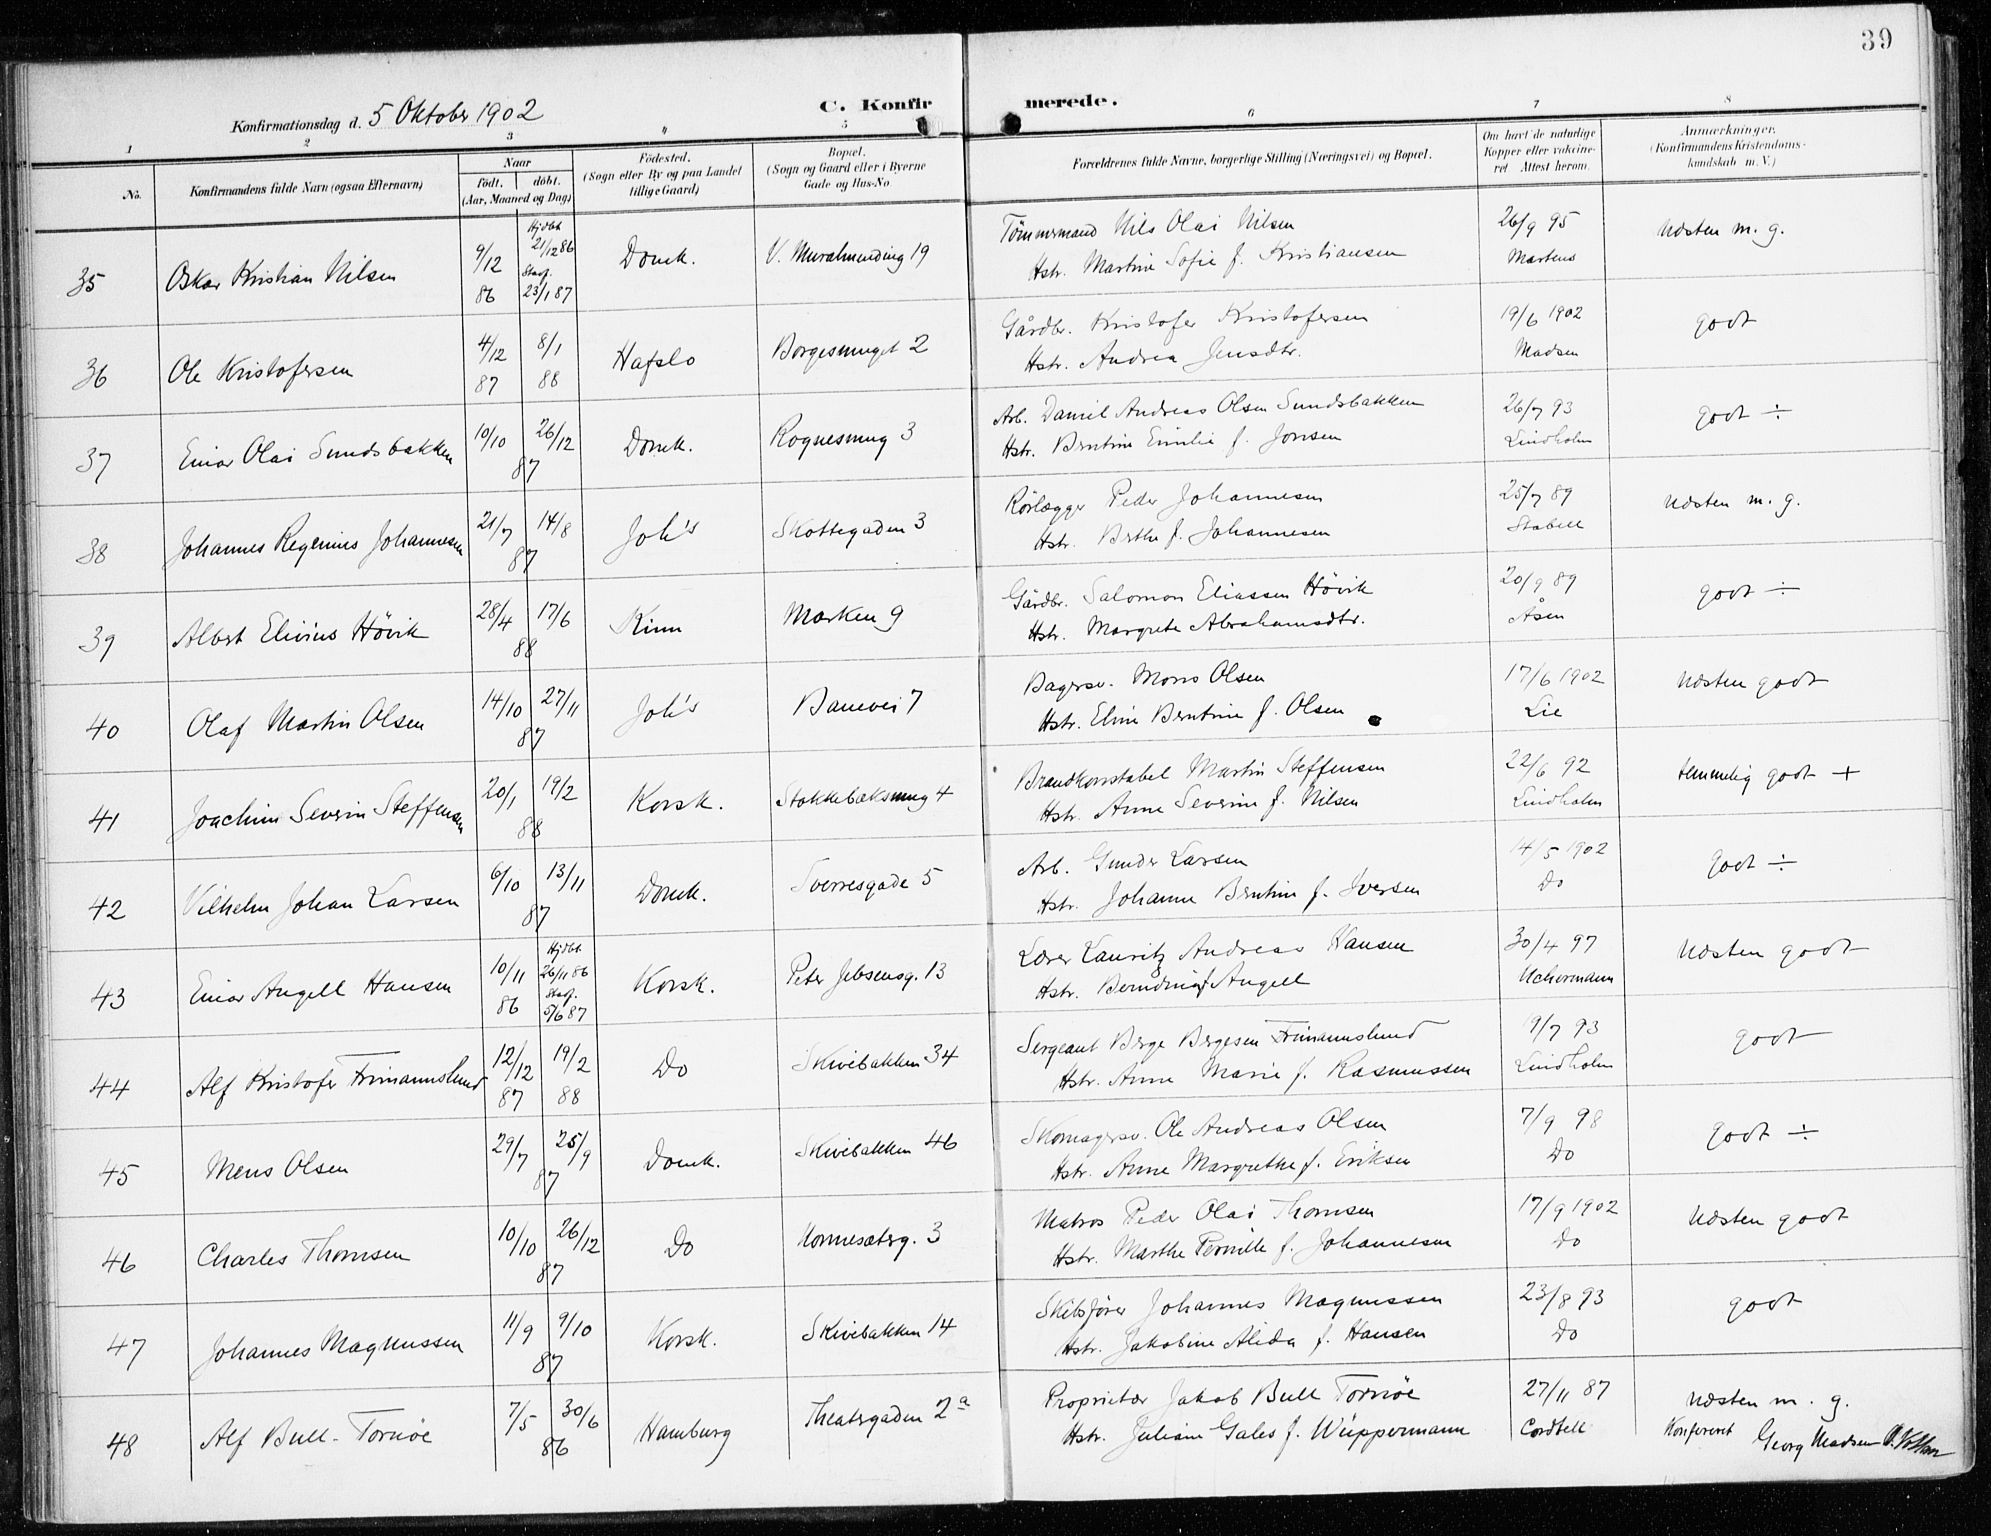 39
Konfirmationsdag d. 5 Oktober 1902
C. Konfirmerede.
1 2 3 4 5 6 7 8
No.
Konfirmandens fulde Navn (ogsaa Efternavn)
Naar
født. døbt.
(Aar, Maaned og Dag)
Fødested.
(Sogn eller By og paa Landet
tillige Gaard)
Bopæl.
(Sogn og Gaard eller i Byerne
Gade og Hus-No
Forældrenes fulde Navne, borgerlige Stilling (Næringsvei) og Bopæl.
Om havt de naturlige
Kopper eller vaccine-
ret Attest herom.
Anmærkninger.
(Konfirmandens Kristendoms-
kundskab m. V.)
35 Oskar Kristian Nilsen 9/12 86 Hjdbt. 21/12 86 Stadf. 23/1 87 Domk. V. Muralmending 19
Tømmermand Nils Olai Nilsen 26/9 95 Næsten m. g.
Hstr. Martine Sofie f. Kristiansen Martens
36 Ole Kristofersen 4/12 87 8/1 88 Hafslo Borgesmuget 2
Gårdbr. Kristofer Kristofersen 19/6 1902 godt
Hstr. Andrea Jensdtr. Madsen
37 Einar Olai Sundsbakken 10/10 26/12 87 Domk. Rognesmug 3
Arb. Daniel Andreas Olsen Sundsbakken 26/7 93 godt ÷
Hstr. Berntine Emilie f. Jonsen Lindholm
38 Johannes Regenius Johannesen 21/7 14/8 87 Joh's Skottegaden 3
Rørlægger Peder Johannesen 25/7 89 Næsten m. g.
Hstr. Berthe f. Johannesen Stabell
39 Albert Elivius Høvik 28/4 17/6 88 Kinn Marken 9
Gårdbr. Salomon Eliassen Høvik 20/9 89 godt ÷
Hstr. Margrete Abrahamsdtr. Åsen
40 Olaf Martin Olsen 14/10 27/11 87 Joh's Banevei 7
Bagersv. Mons Olsen 17/6 1902 Næsten godt
Hstr. Eline Berntine f. Olsen Lie
41 Joachim Severin Steffensen 20/1 19/2 88 Korsk. Stokkebæksmug 4
Brandkonstabel Martin Steffensen 22/6 92 temmelig godt +
Hstr. Anne Severine f. Nilsen Lindholm
42 Vilhelm Johan Larsen 6/10 13/11 87 Domk. Sverresgade 5
Arb. Gunder Larsen 14/5 1902 godt ÷
Hstr. Johanne Berntine f. Iversen Do
43 Einar Angell Hansen 10/11 86 Hjdbt. 26/11 86 Stadf. 5/6 87 Korsk. Peter Jebsensg. 13
Lærer Lauritz Andreas Hansen 30/4 97 Næsten godt
Hstr. Berndine f. Angell Uchermann
44 Alf Kristofer Frimannslund 12/12 87 19/2 88 Do Skivebakken 34
Sergeant Berge Bergesen Frimannslund 9/7 93 godt
Hstr. Anne Marie f. Rasmussen Lindholm
45 Mens Olsen 29/7 25/9 87 Domk. Skivebakken 46
Skomagersv. Ole Andreas Olsen 7/9 98 godt ÷
Hstr. Anne Margrethe f. Eriksen Do
46 Charles Thomsen 10/10 26/12 87 Do Konnesæterg. 3
Matros Peder Olai Thomsen 17/9 1902 Næsten godt
Hstr. Marthe Pernille f. Johannesen Do
47 Johannes Magnussen 11/9 9/10 87 Korsk. Skivebakken 14
Skibsfører Johannes Magnussen 23/8 93 godt
Hstr. Jakobine Alida f. Hansen Do
48 Alf Bull-Tornøe 7/5 30/6 86 Hamburg Theatergaden 2a
Proprietær Jakob Bull Tornøe 27/11 87 Næsten m. g.
Hstr. Juliane Gales f. Wüppermann Cordtell Konfereret Georg Madsen